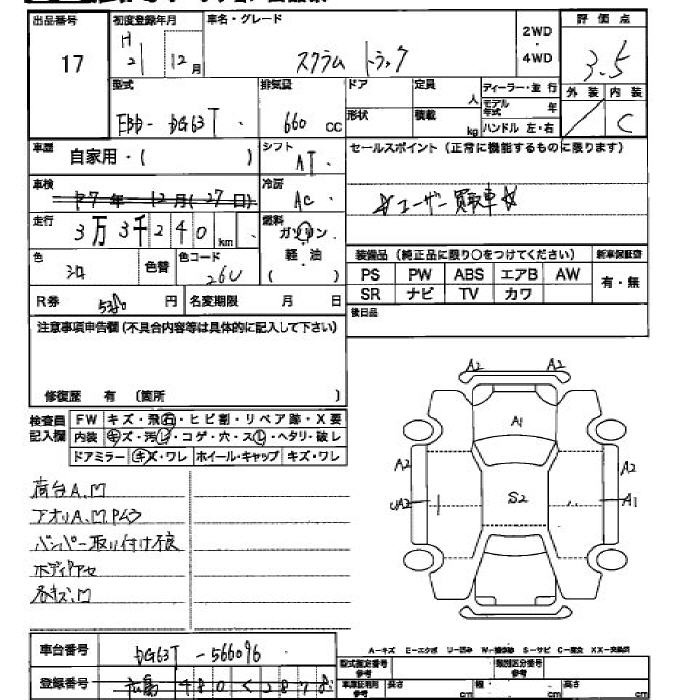 出品番号 初度登録年月 車名・グレード 2WD 評価点
17 H21 12月 スクラム トラック ・ 4WD 3.5
型式 排気量 ドア 定員 人 ディーラー・並行 外装 内装
EBD- DG63T 660 cc 形状 積載 kg モデル年式 年 C
ハンドル 左・右
車歴 自家用・( ) シフト AT セールスポイント(正常に機能するものに限ります)
車検 年12月(27日) 冷房 AC ☆ユーザー買取車☆
走行 3万3千240km 燃料 ガソリン・軽油( )
装備品(純正品に限り○をつけてください) 新車保証書
色 色替 色コード 26U PS PW ABS エアB AW 有・無
SR ナビ TV カワ
R券 円 名変期限 月 日 後日品
注意事項申告欄(不具合内容等は具体的に記入して下さい)
修復歴 有 (箇所 )
検査員記入欄 FW キズ・飛石・ヒビ割・リペア跡・X要
内装 キズ・汚レ・コゲ・穴・スレ・ヘタリ・破レ
ドアミラー キズ・ワレ ホイール・キャップ キズ・ワレ
A2 A2
A1
A2 A2
S2
UA2 A1
荷台A.凹
アオリA.凹.P
バンパー取り付け不良
ボディ
各キズ.凹
車台番号 DG63T-566096
A-キズ E-エクボ W-補修跡 S-サビ C-腐食 XX-交換済
型式指定番号 参考 類別区分番号 参考
登録番号 広島 480 く 2878
車庫証明用 参考 長さ cm 幅 cm 高さ cm